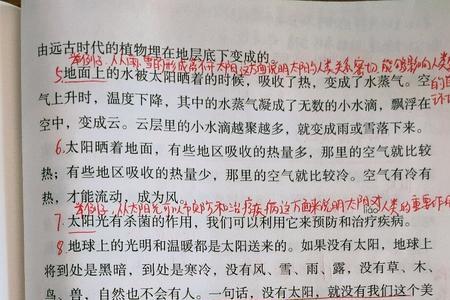 由远古时代的植物埋在地层底下变成的
举例子,从雨、雪的形成离不开太阳,这方面说明太阳与人类关系密切,能够影响人类
5.地面上的水被太阳晒着的时候,吸收了热,变成了水蒸气。空
气上升时,温度下降,其中的水蒸气凝成了无数的小水滴,飘浮在
空中,变成云。云层里的小水滴越聚越多,就变成雨或雪落下来。
6.太阳晒着地面,有些地区吸收的热量多,那里的空气就比较
热;有些地区吸收的热量少,那里的空气就比较冷。空气有冷有
热,才能流动,成为风。
举例子,从太阳光可以预防和治疗疾病这方面来说明太阳对人类的重要作用
7.太阳光有杀菌的作用,我们可以利用它来预防和治疗疾病。
8.地球上的光明和温暖都是太阳送来的。如果没有太阳,地球上
将到处是黑暗,到处是寒冷,没有风、雪、雨、露,没有草、木、
鸟、兽,自然也不会有人。一句话,没有太阳,就没有我们这个美